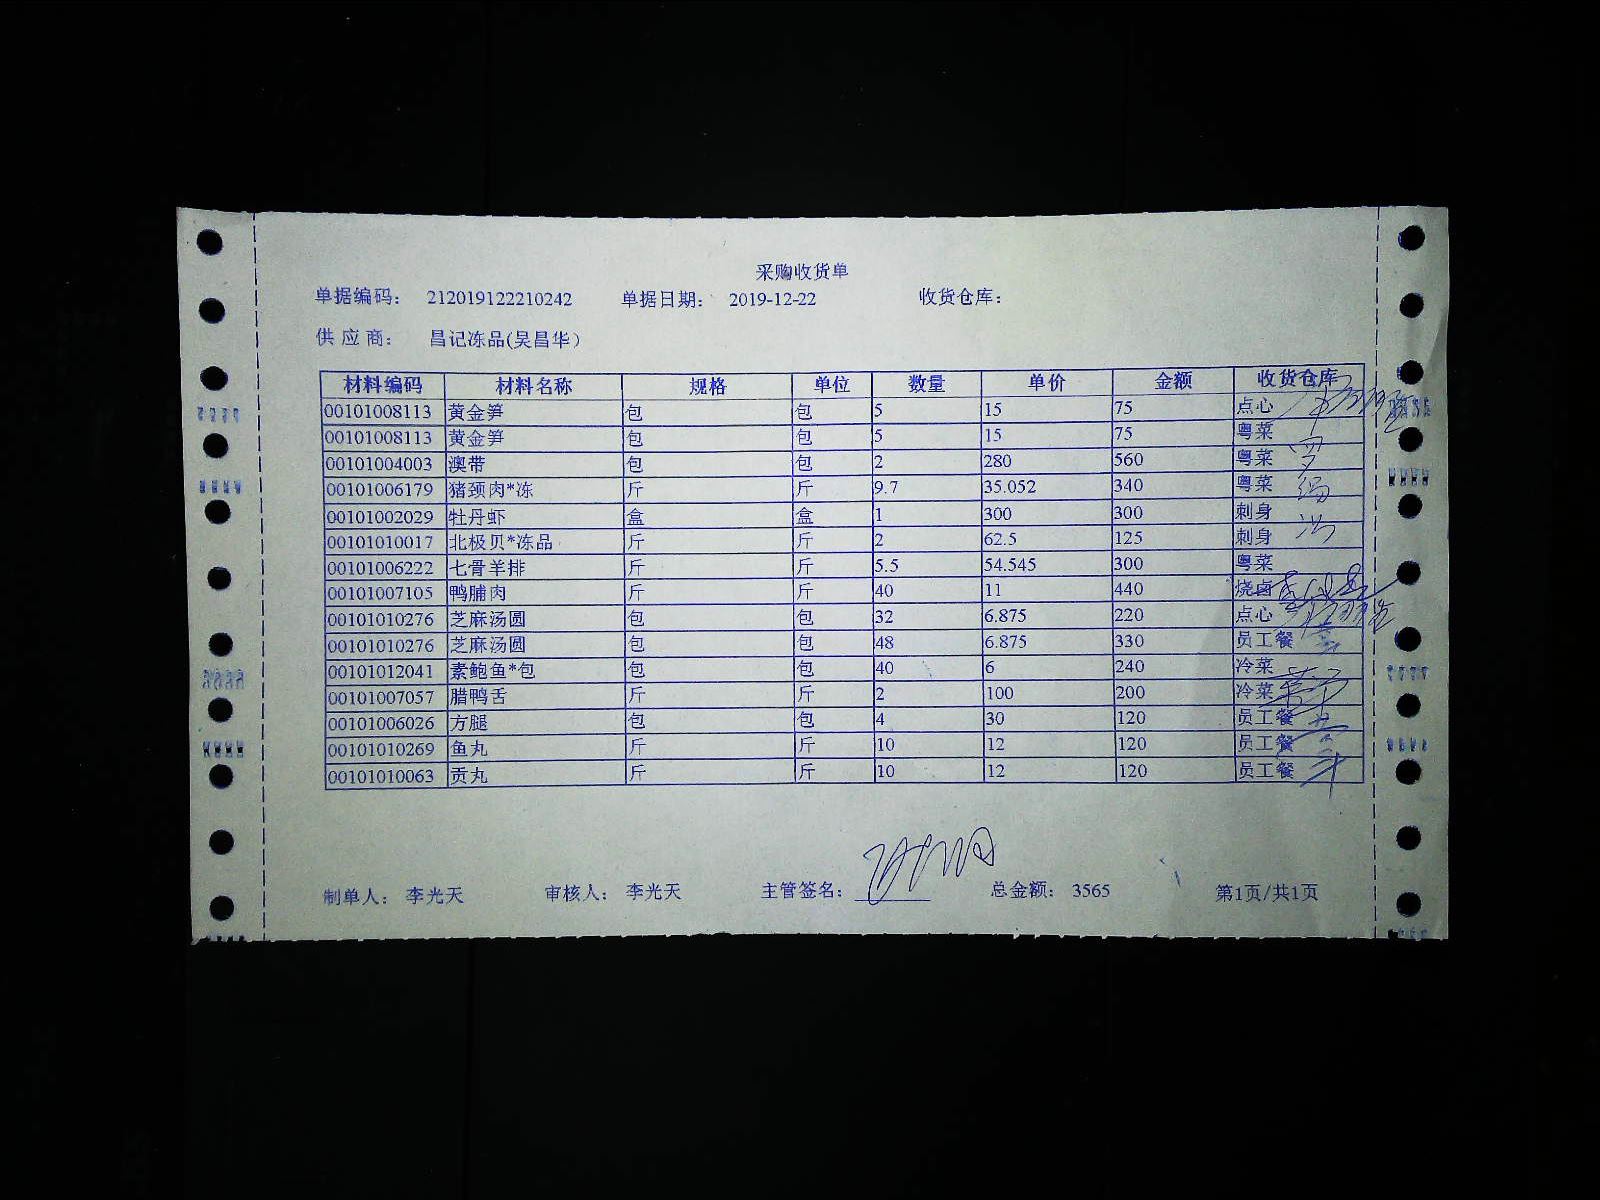 采购收货单
单据编码： 212019122210242 单据日期： 2019-12-22 收货仓库：
供 应 商： 昌记冻品(吴昌华)
材料编码 材料名称 规格 单位 数量 单价 金额 收货仓库
00101008113 黄金笋 包 包 5 15 75 点心
00101008113 黄金笋 包 包 5 15 75 粤菜
00101004003 澳带 包 包 2 280 560 粤菜
00101006179 猪颈肉*冻 斤 斤 9.7 35.052 340 粤菜
00101002029 牡丹虾 盒 盒 1 300 300 刺身
00101010017 北极贝*冻品 斤 斤 2 62.5 125 刺身
00101006222 七骨羊排 斤 斤 5.5 54.545 300 粤菜
00101007105 鸭脯肉 斤 斤 40 11 440 烧卤
00101010276 芝麻汤圆 包 包 32 6.875 220 点心
00101010276 芝麻汤圆 包 包 48 6.875 330 员工餐
00101012041 素鲍鱼*包 包 包 40 6 240 冷菜
00101007057 腊鸭舌 斤 斤 2 100 200 冷菜
00101006026 方腿 包 包 4 30 120 员工餐
00101010269 鱼丸 斤 斤 10 12 120 员工餐
00101010063 贡丸 斤 斤 10 12 120 员工餐
制单人： 李光天 审核人： 李光天 主管签名： 总金额： 3565 第1页/共1页